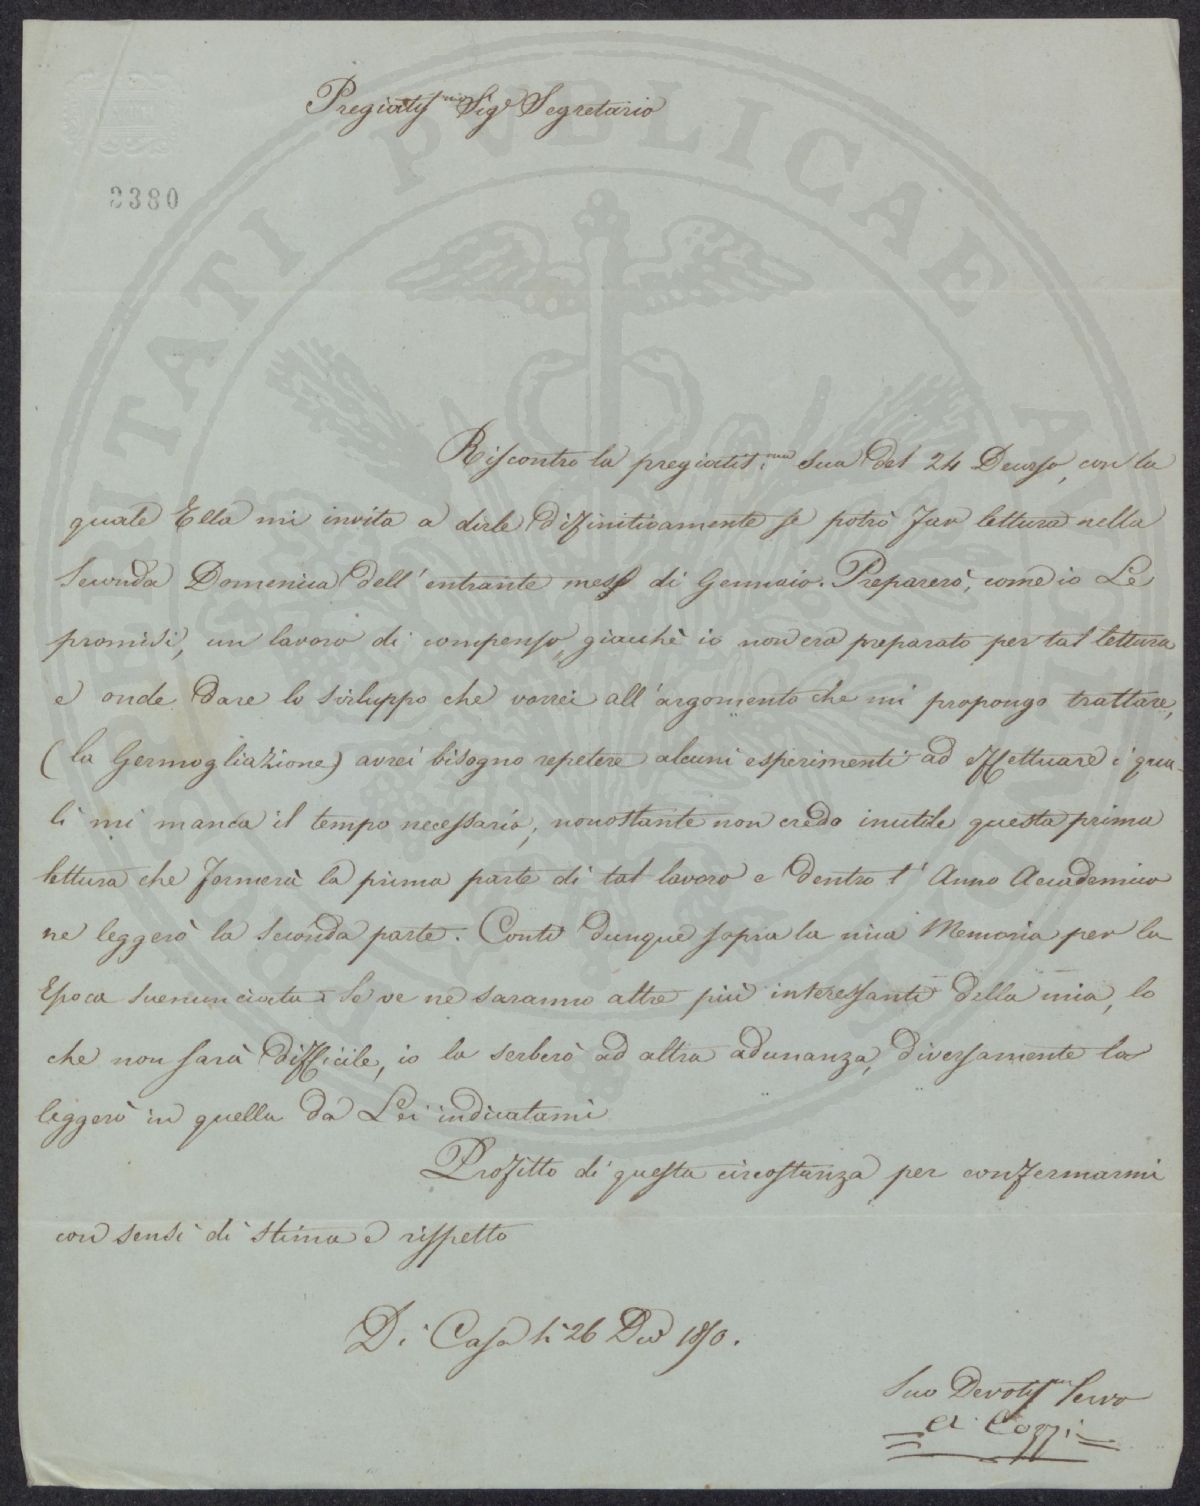 Pregiatis.mo Sig.e Segretario
2380
PROSPERITATI PVBLICAE AVGENDAE
Riscontro la pregiatis.ma Sua del 24 Decorso, con la
quale Ella mi invita a dirle difinitivamente se potrò far lettura nella
Seconda Domenica dell'entrante mese di Gennaio. Preparerò, come io Le
promisi, un lavoro di compenso, giacchè io non era preparato per tal lettura
e onde dare lo sviluppo che vorrei all'argomento che mi propongo trattare,
(la Germogliazione) avrei bisogno repetere alcuni esperimenti ad effettuare i qua-
li mi manca il tempo necessario, nonostante non credo inutile questa prima
lettura che formerà la prima parte di tal lavoro e dentro l'Anno Accademico
ne leggerò la Seconda parte. Conti dunque sopra la mia Memoria per la
Epoca suenunciata. Se ve ne saranno altre più interessanti della mia, lo
che non sarà difficile, io la serberò ad altra adunanza, diversamente la
leggerò in quella da Lei indicatami
Profitto di questa circostanza per confermarmi
con sensi di stima e rispetto
Di Casa li 26 Dec 1850.
Suo Devotis.mo Servo
A. Cozzi